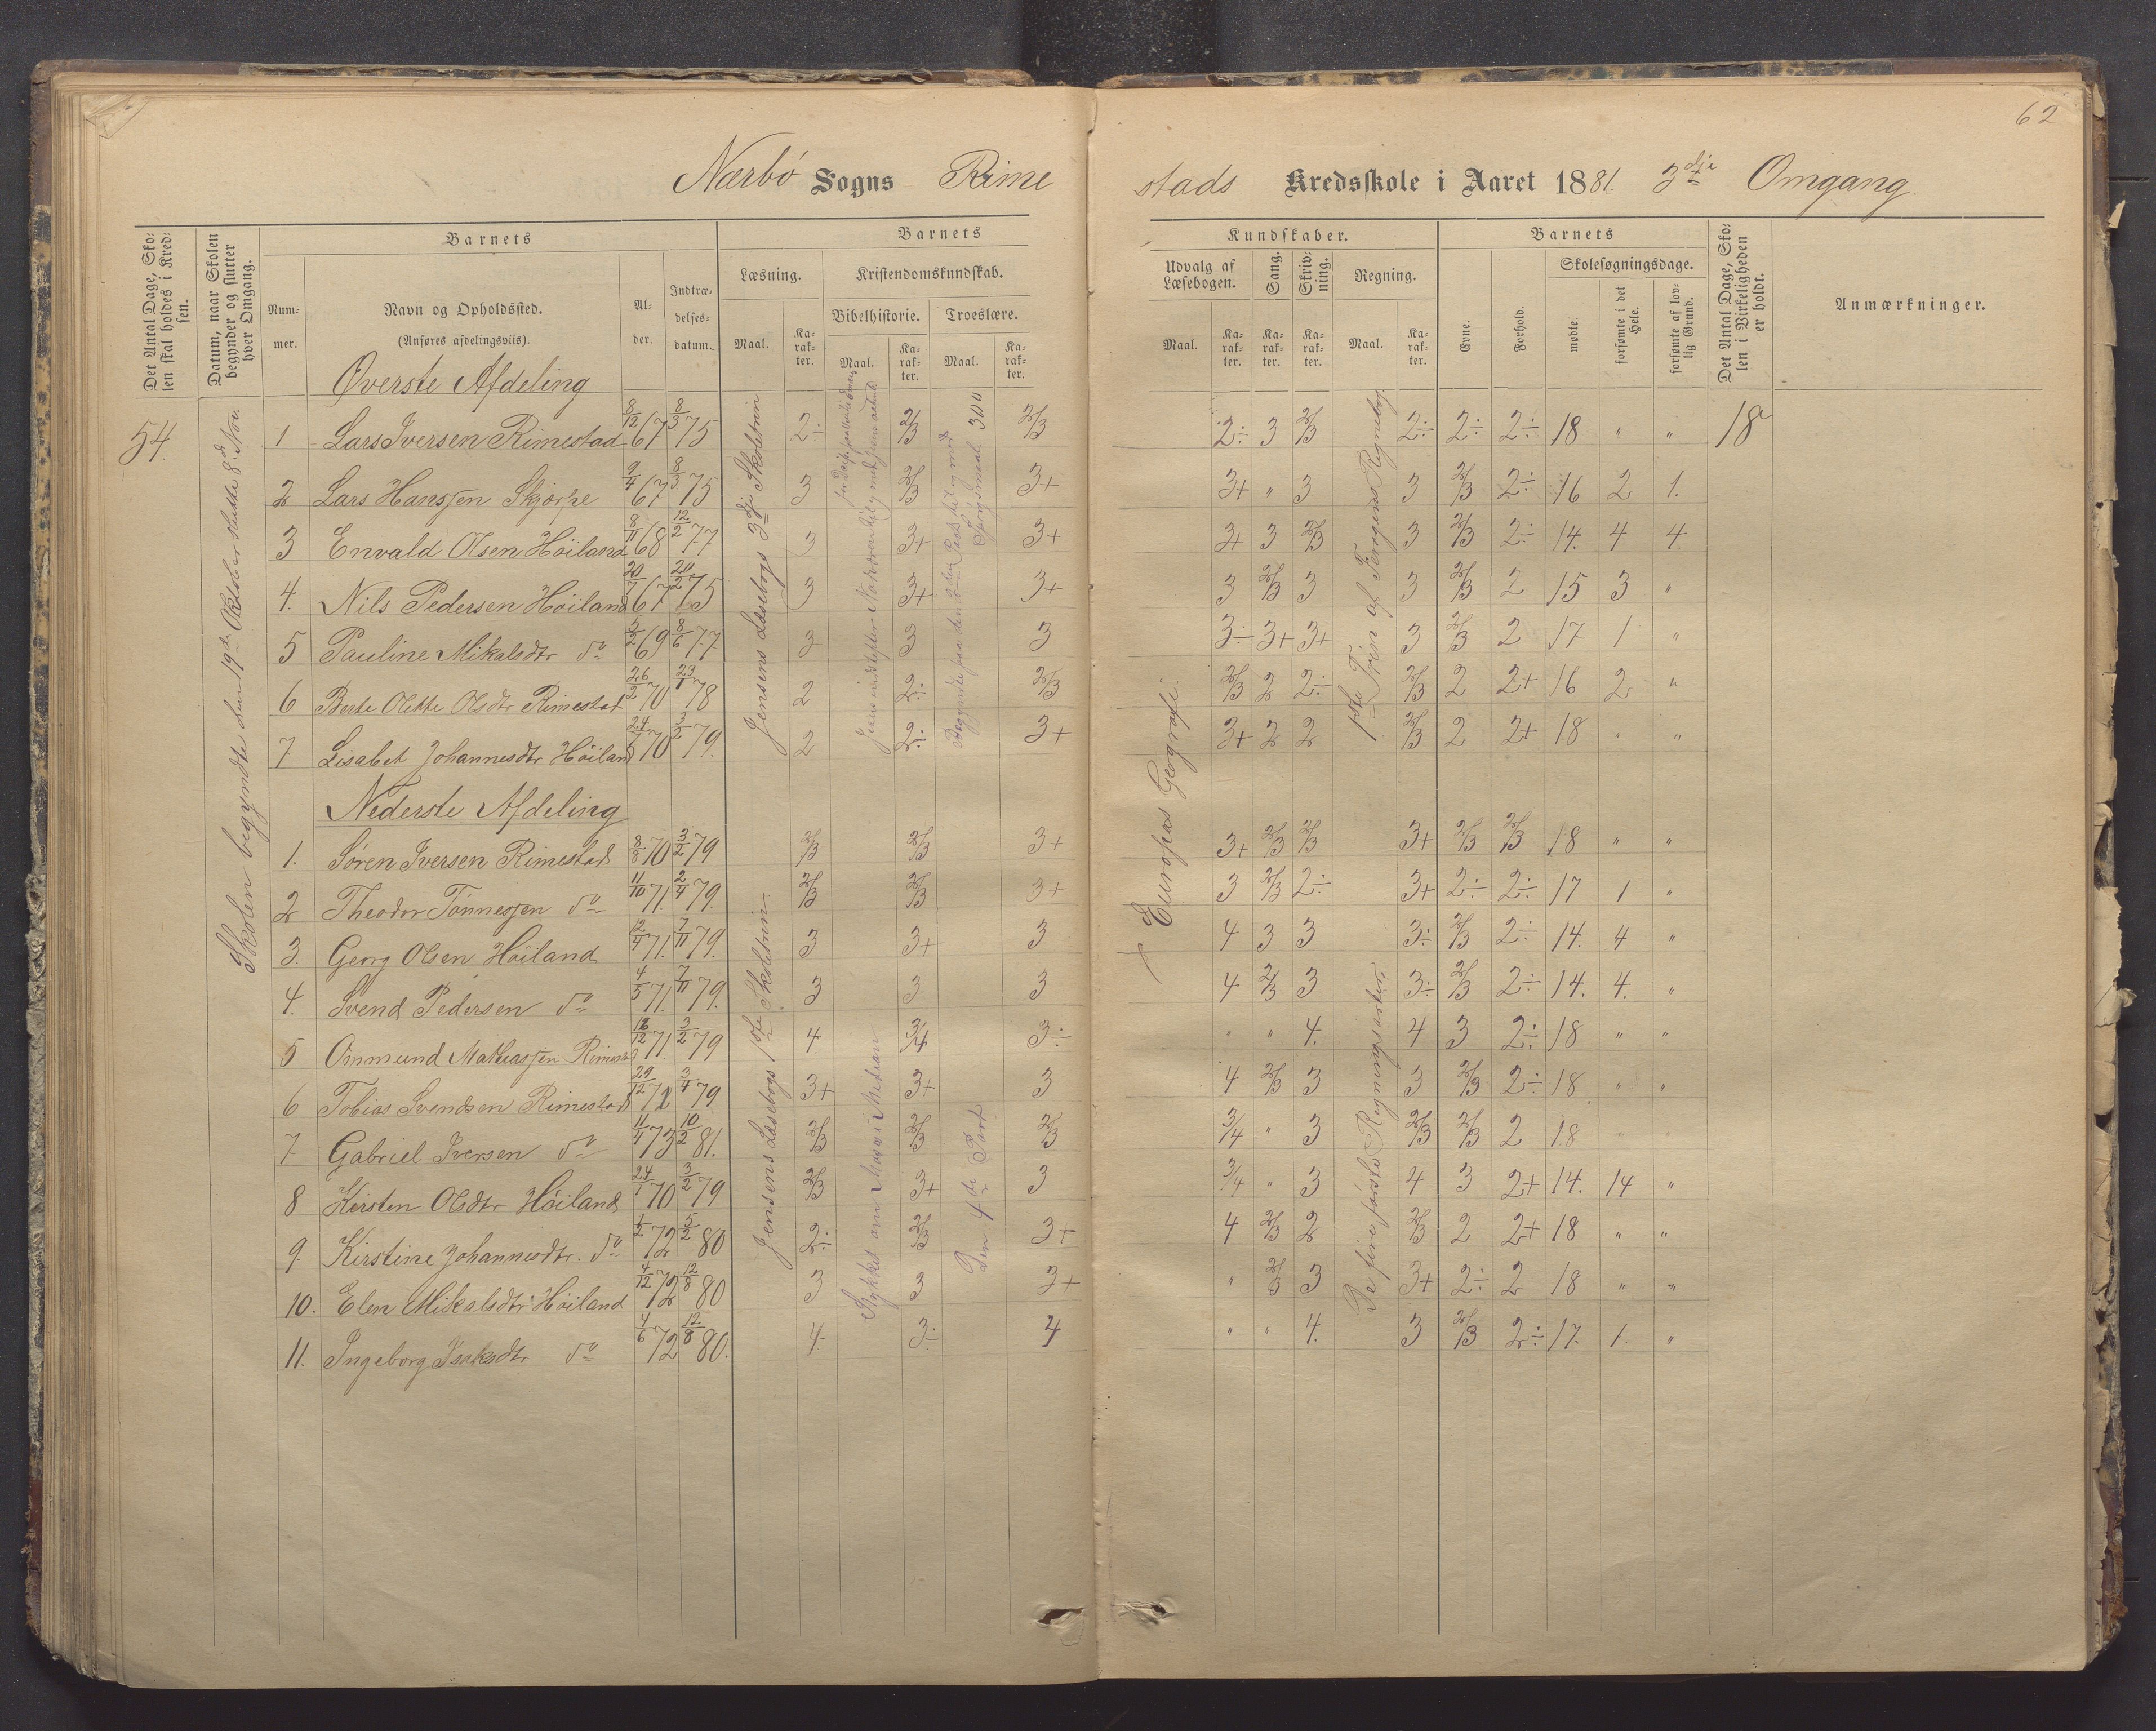 62
Nærbö Sogns Rimestads Kredsskole i Aaret 1881. 3die Omgang.
Det Antal Dage, Skolen skal holdes i Kredsen.
Datum, naar Skolen begynder og slutter hver Omgang.
Barnets
Nummer.
Navn og Opholdssted.
(Anføres afdelingsviis).
Alder.
Indtrædelsesdatum.
Barnets
Læsning.
Maal.
Karakter.
Kristendomskundskab.
Bibelhistorie.
Maal.
Karakter.
Troeslære.
Maal.
Karakter.
Kundskaber.
Udvalg af Læsebogen.
Maal.
Karakter.
Sang.
Karakter.
Skrivning.
Karakter.
Regning.
Maal.
Karakter.
Barnets
Evne.
Forhold.
Skolesøgningsdage.
mødte.
forsømte i det Hele.
forsømte af lovlig Grund.
Det Antal Dage, Skolen i Virkeligheden er holdt.
Anmærkninger.
54.
Skolen begyndte den 19de Oktober sluttede 8d Nov.
Øverste Afdeling
Jensens Læsebogs 3die Skoletrin
+ Europas Geografi
1 Lars Iversen Rimestad 8/12 67 8/3 75 2÷ 2/3 2/3 2÷ 3 2/3 2÷ 2÷ 2÷ 18 " " 18
2 Lars Hanssen Skjærpe 9/4 67 8/3 75 3 2/3 3+ 3+ " 3 3 2/3 2÷ 16 2 1.
3 Envald Olsen Höiland 8/11 68 12/2 77 3 3+ 3+ 3+ 3 2/3 3 2/3 2÷ 14. 4 4
4. Nils Pedersen Höiland 20/7 67 20/2 75 3 3+ 3+ 3 2/3 3 3 2/3 2 15 3 "
5 Pauline Mikalsdtr do 5/2 69 8/6 77 3 3 3 3÷ 3+ 3+ 3 2/3 2 17 1 "
6 Berte Olette Olsdtr Rimestad 26/2 70 23/1 78 2 2÷ 2/3 2/3 2 2÷ 2/3 2 2+ 16 2 "
7 Lisabet Johannesdtr Höiland 24/5 70 3/2 79. 2 2÷ 3+ 3+ 2 2 2/3 2 2+ 18 " "
Nederste Afdeling
Jensens Læsebogs 1ste Skoletrin
Den 4de Part
De fire første Regningsarter
1. Søren Iversen Rimestad 8/8 70 3/2 79 2/3 2/3 3+ 3+ 2/3 2/3 3+ 2/3 2/3 18 " "
2 Theodor Tönnessen do 11/10 71. 2/4 79. 2/3 2/3 3+ 3 2/3 2÷ 3+ 2÷ 2÷ 17 1 "
3. Georg Olsen Höiland 12/4 71. 7/11 79. 3 3+ 3 4 3 3 3÷ 2/3 2÷ 14. 4 "
4. Svend Pedersen do 4/5 71. 7/11 79. 3 3 3 4 2/3 3 3÷ 2/3 2÷ 14. 4. "
5 Ommund Mathiassen Rimestad 18/12 71 3/2 79 4 3/4 3÷ " " 4. 4 3 2÷ 18 " "
6 Tobias Svendsen Rimestad 29/12 72 3/1 79 3+ 3+ 3 4 2/3 3 3 2/3 2÷ 18 " "
7 Gabriel Iversen do 11/4 73 10/2 81. 2/3 2/3 2/3 3/4 " 3 2/3 2/3 2 18
8 Kirsten Olsdtr Höiland 24/1 70 3/2 79 2/3 3+ 3 3/4 " 3 4 3 2+ 14. 14 "
9. Kirstine Johannesdtr. do 1/2 72 5/2 80 2÷ 2/3 3+ 4 2/3 2 2/3 2 2+ 18 " "
10. Elen Mikalsdtr Höiland 4/12 72 12/8 80 3 3 3+ " 2/3 3 3+ 2÷ 2 18 " "
11. Ingeborg Isaksdtr do 4/6 72 12/8 80. 4 3÷ 4 " " 4. 3 2/3 2÷ 17. 1 "